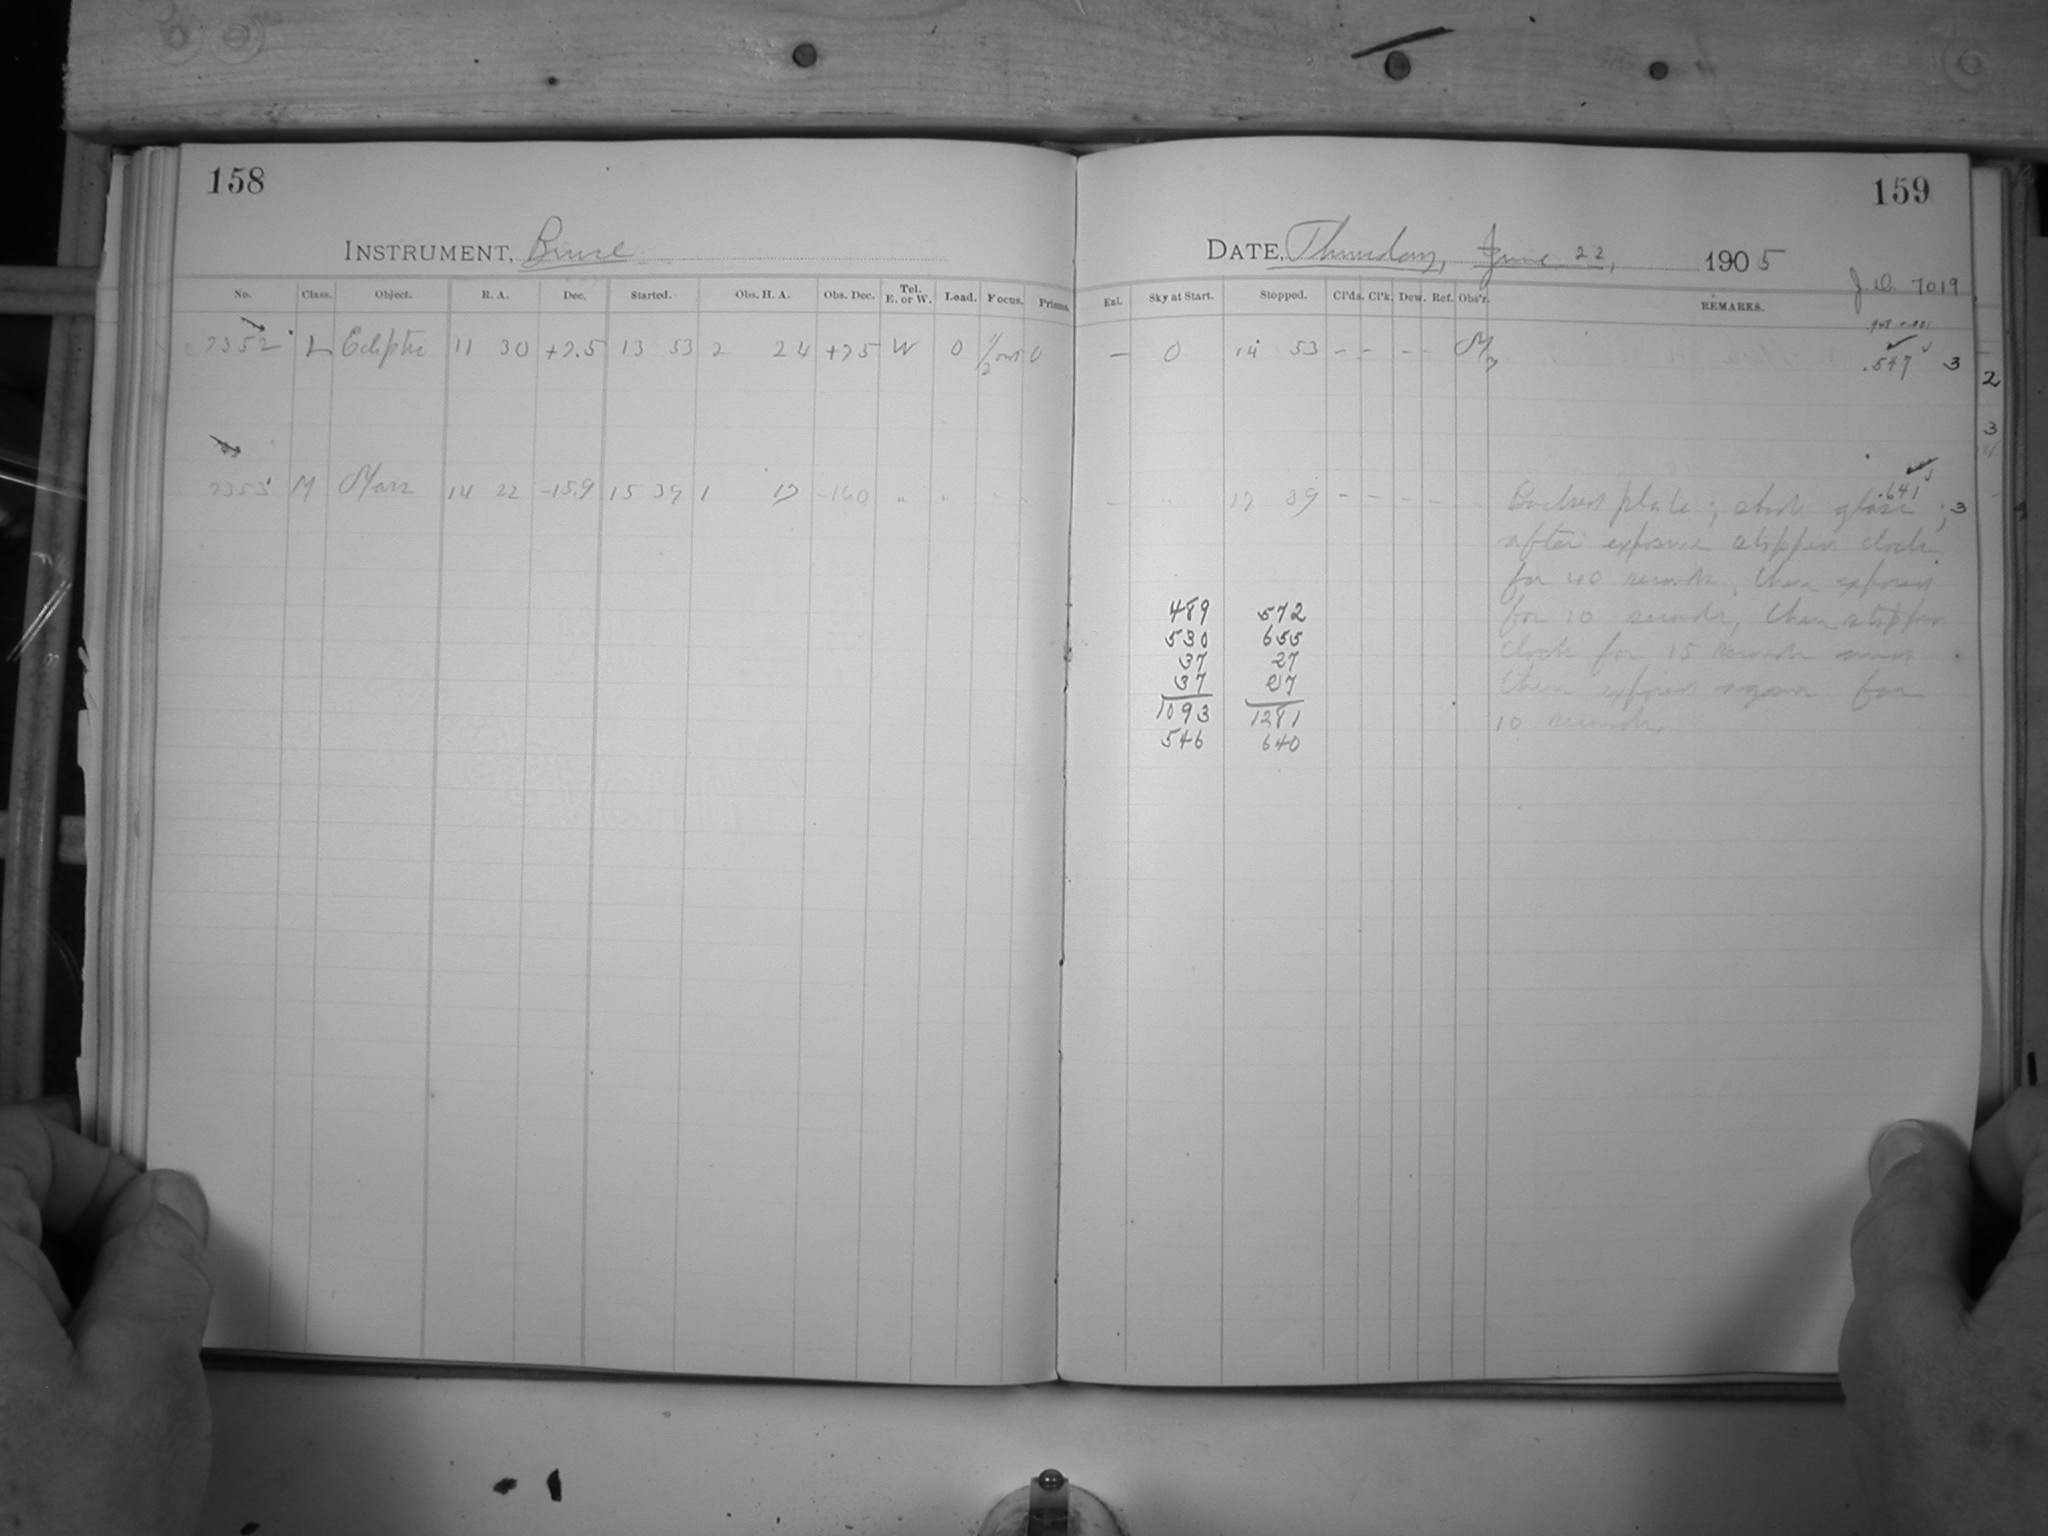 158
159
INSTRUMENT, Bruce
DATE, Thursday, June 22, 1905
J. D. 7019
No. Class. Object. R. A. Dec. Started. Obs. H. A. Obs. Dec. Tel. E. or W. Load. Focus. Prisms.
Exl. Sky at Start. Stopped. Cl'ds. Cl'k. Dew. Ref. Obs'r. REMARKS.
7352 L Ecliptic 11 30 +7.5 13 53 2 24 +75 W 0 0
– 0 14 53 – – – – .547 3
2
3
7353 M Mars 14 22 –15.9 15 39 1 17 –160 " "
– " 17 39 – – – – .641 3
Backed plate;
after exposure stopped clock
for 40 seconds, then exposed
for 10 seconds, then stopped
clock for 15 seconds and
then exposed again for
10 seconds.
489 572
530 655
37 27
37 27
1093 1281
546 640